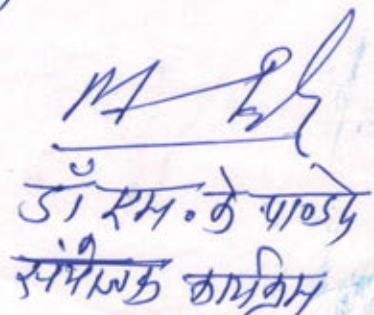 डॉ एम. के. पाण्डे
संयोजक कार्यक्रम